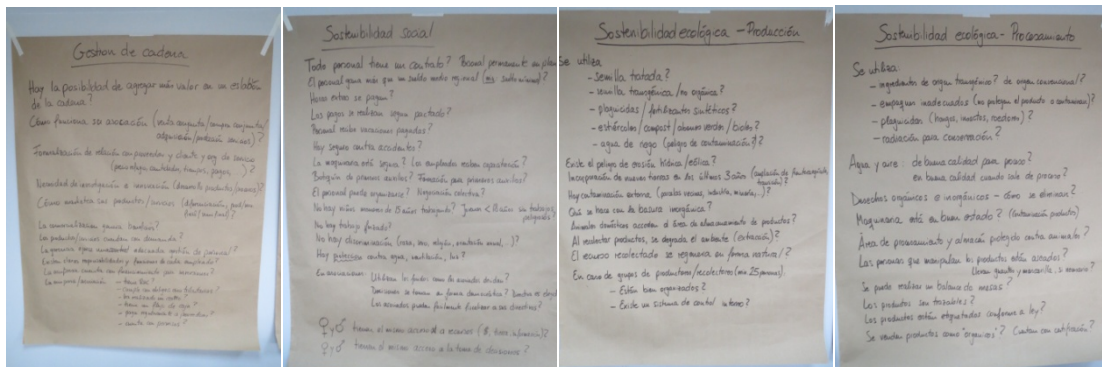 Gestión de cadena
Hay la posibilidad de agregar más valor en un eslabón
de la cadena?
Cómo funciona su asociación (venta conjunta/compra conjunta/
adquisición/prestación servicios)?
Formalización de relación con proveedores y clientes y org. de servicio
Necesidad de investigación e innovación (desarrollo productos/)?
Cómo
La comercialización genera beneficios?
Los productos/servicios cuentan con demanda?
La gerencia
Están claros responsabilidades y funciones de cada empleado?
La empresa cuenta con
La empresa/asociación
- tiene
- cumple con
- tiene un flujo de caja?
- cuenta con permisos?
Sostenibilidad social
Todo personal tiene un contrato? Personal permanente en planilla
El personal gana más que un sueldo medio regional (sueldo mínimo)?
Horas extras se pagan?
Los pagos se realizan según pactado?
Personal recibe vacaciones pagadas?
Hay seguro contra accidentes?
La maquinaria está segura? Los empleados reciben capacitación?
Botiquín de primeros auxilios? Formación para primeros auxilios?
El personal puede organizarse? Negociación colectiva?
No hay niños menores de 15 años trabajando? Jóvenes < 18 años sin trabajos
peligrosos?
No hay trabajo forzado?
No hay discriminación (raza, sexo, religión, orientación sexual, ...)?
Hay protección contra agua, ventilación, luz?
En asociaciones:
Utilizan los fondos como de acuerdo
Decisiones se toman en forma democrática? Directiva es elegida
Los asociados pueden fácilmente
♀ y ♂ tienen el mismo acceso a recursos ($, tierra, información)?
♀ y ♂ tienen el mismo acceso a la toma de decisiones?
Sostenibilidad ecológica - Producción
Se utiliza
- Semilla tratada?
- semilla transgénica/no orgánica?
- plaguicidas / fertilizantes sintéticos?
- estiércoles/compost/abonos verdes/bioles?
- agua de riego (peligro de contaminación)?
Existe el peligro de erosión hídrica/eólica?
Incorporación de nuevas tierras en los últimos 3 años
Hay contaminación externa (parcelas vecinas, industria, minería, ...)?
Qué se hace con la basura inorgánica?
Animales domésticos acceden al área de almacenamiento de productos?
Al recolectar productos, se degrada el ambiente (extracción)?
El recurso recolectado se regenera en forma natural?
En caso de grupos de productores/recolectores (min 25 personas):
- Están bien organizados?
- Existe un sistema de control interno?
Sostenibilidad ecológica - Procesamiento
Se utiliza:
- ingredientes de origen transgénico? de origen convencional?
- empaques inadecuados (no protegen el producto o contaminan)?
- plaguicidas (hongos, insectos, roedores)?
- radiación para conservación?
Agua y aire: de buena calidad para proceso?
en buena calidad cuando sale de proceso?
Desechos orgánicos e inorgánicos - cómo se eliminan?
Maquinaria está en buen estado? (Contaminación producto)
Área de procesamiento y almacén protegido contra animales?
Las personas que manipulan los productos están aseados?
Llevan guantes y mascarilla, si necesario?
Se puede realizar un balance de masas?
Los productos son trazables?
Los productos están etiquetados conforme a ley?
Se venden productos como "orgánicos"? Cuentan con certificación?